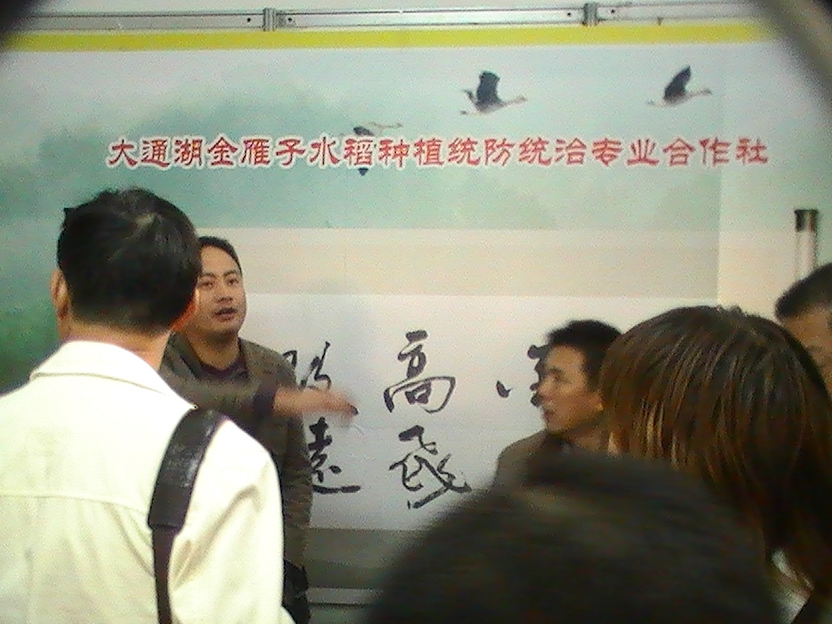 大通湖金雁子水稻种植统防统治专业合作社
高
远 飞